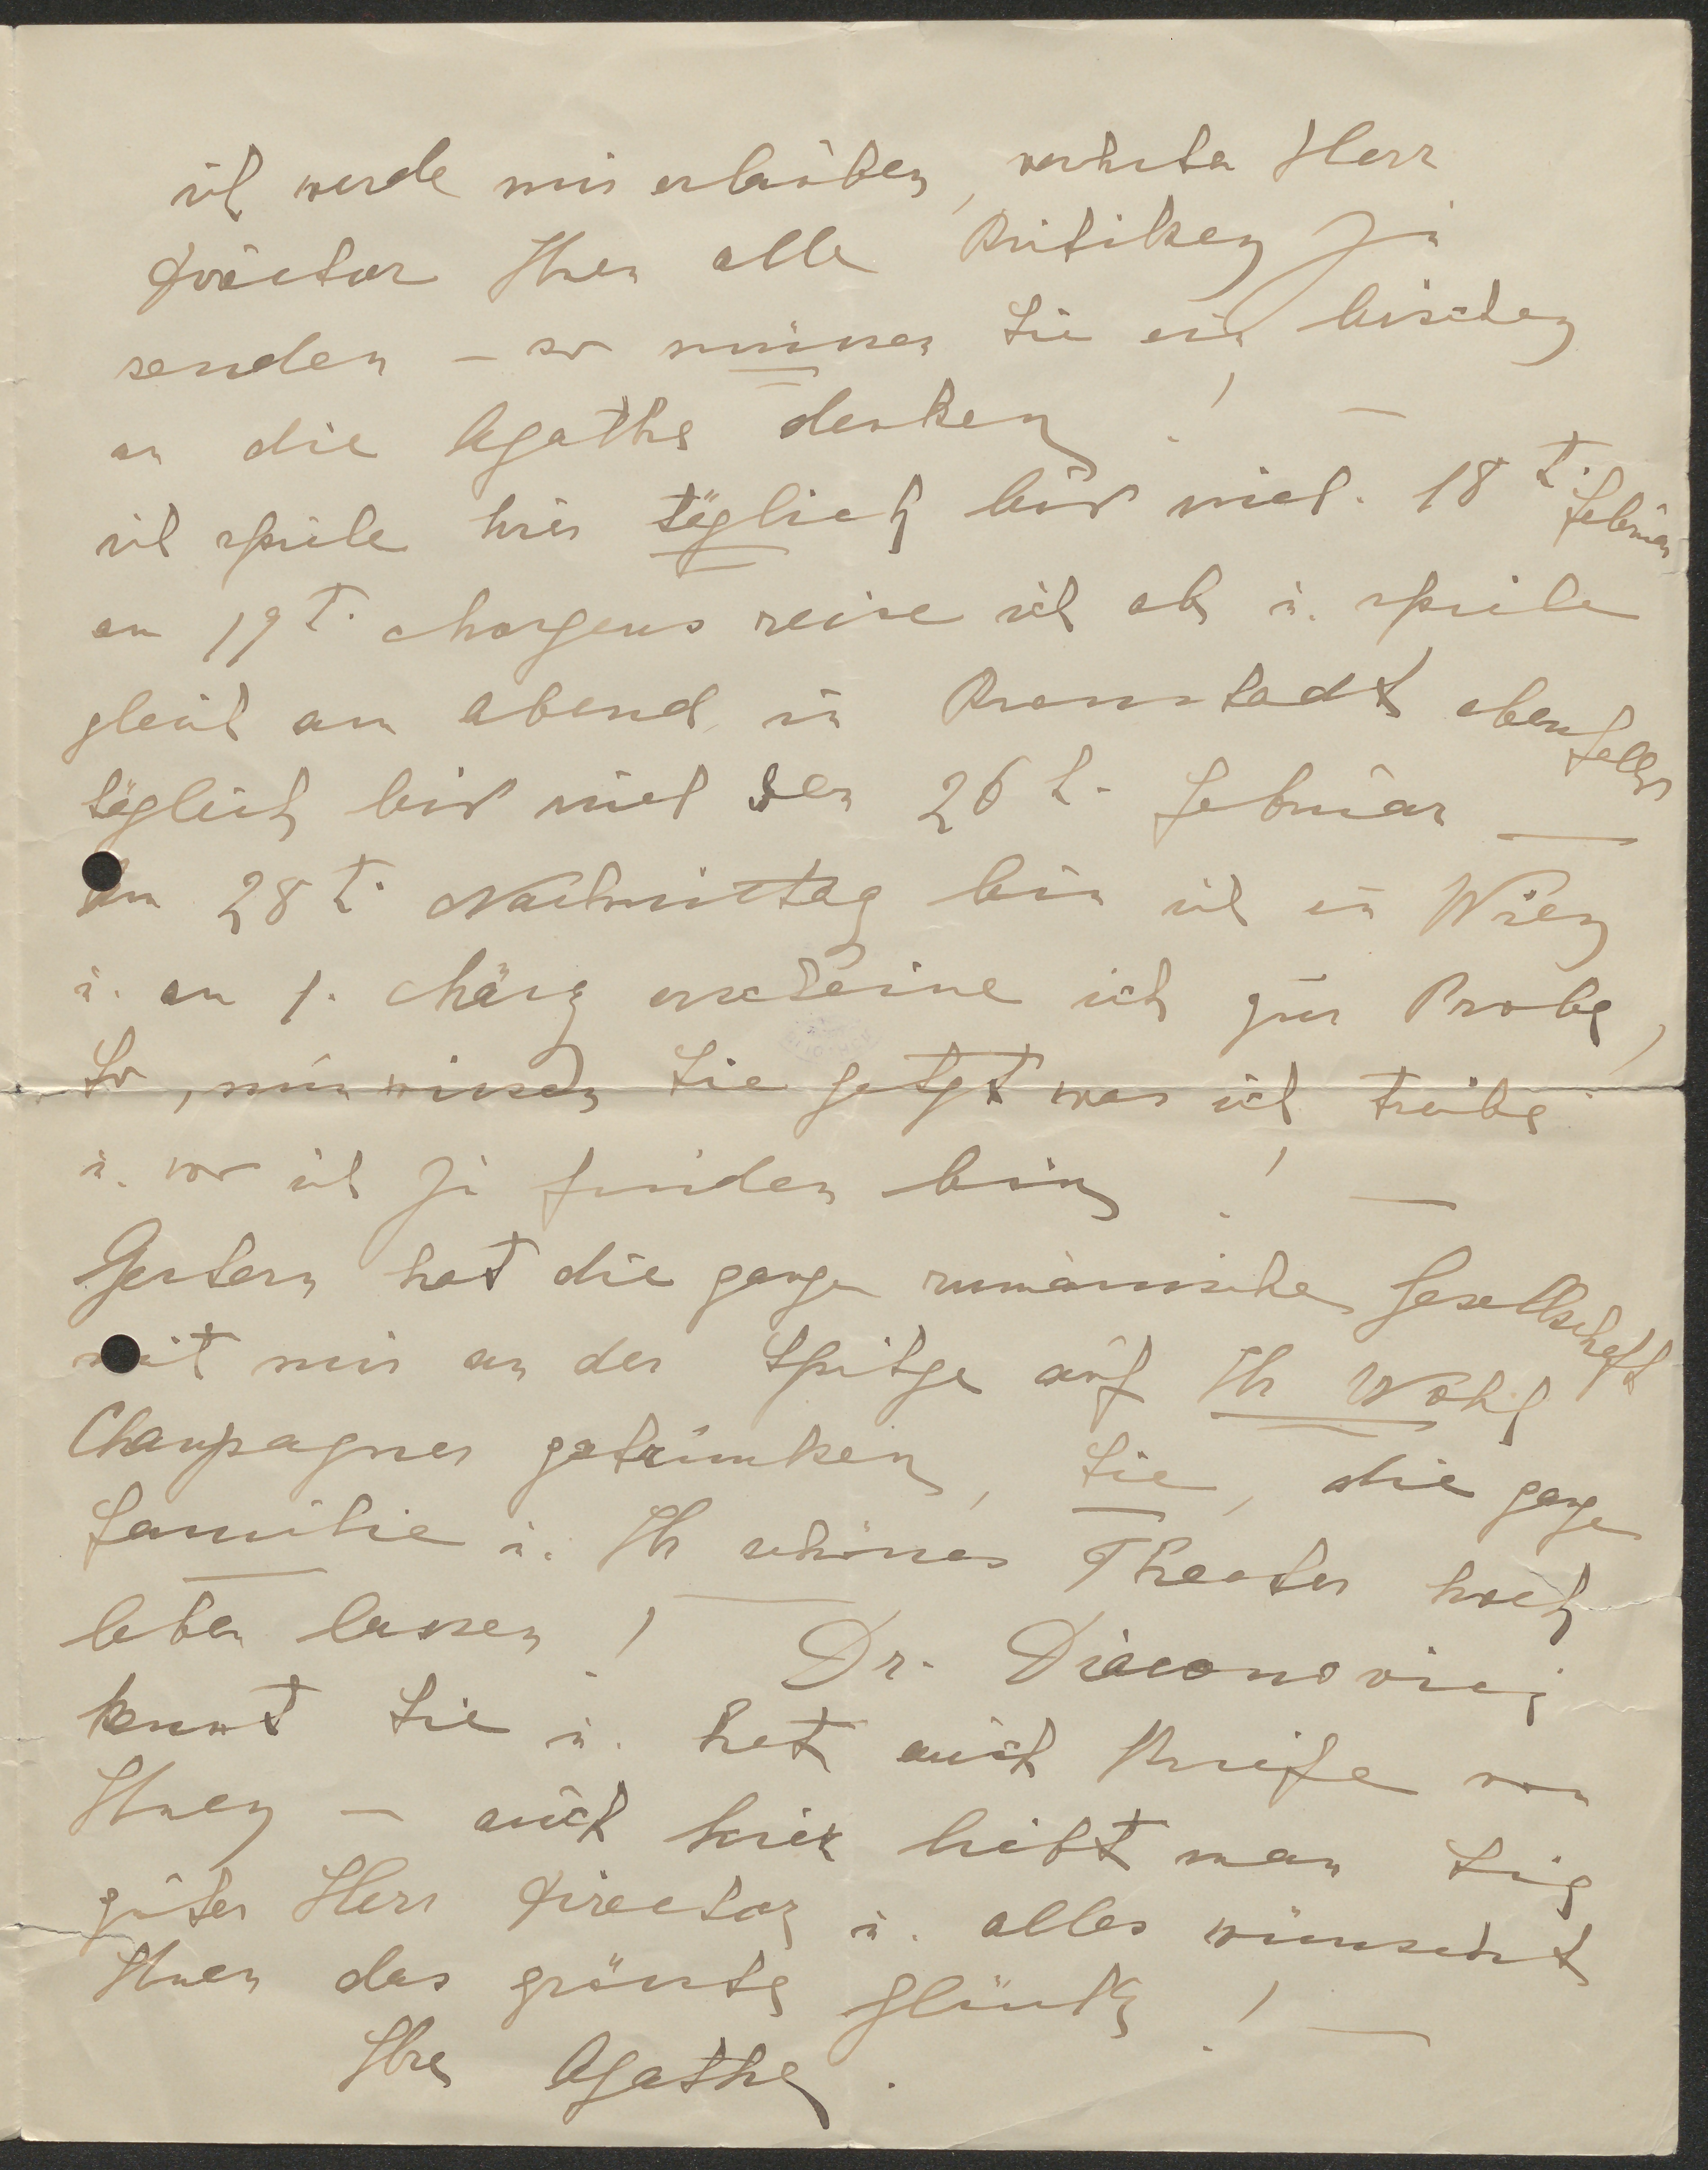 ich werde mir erlauben, verehrter Herr
Director Ihnen alle Kritiken zu
senden – so müssen Sie ein bischen
an die Agathe denken! –
ich spiele hier täglich bis incl. 18t. Februar
am 19t. Morgens reise ich ab u. spiele
gleich am Abend in Kronstadt ebenfalls
täglich bis incl den 26t. Februar –
Am 28t. Nachmittag bin ich in Wien
u. am 1. März erscheine ich zur Probe!
So, nun wissen Sie jetzt was ich treibe
u. wo ich zu finden bin! –
Gestern hat die ganze rumänische Gesellschaft
mit mir an der Spitze auf Ihr Wohl
Champagner getrunken, Sie, die ganze
Familie u. Ihr schönes Theater hoch
leben lassen! Dr. Diaconovici
kennt Sie u. hat auch Briefe von
Ihnen – auch hier liebt man Sie
guter Herr Director u. alles wünscht
Ihnen das grösste Glück! –
Ihre Agathe.